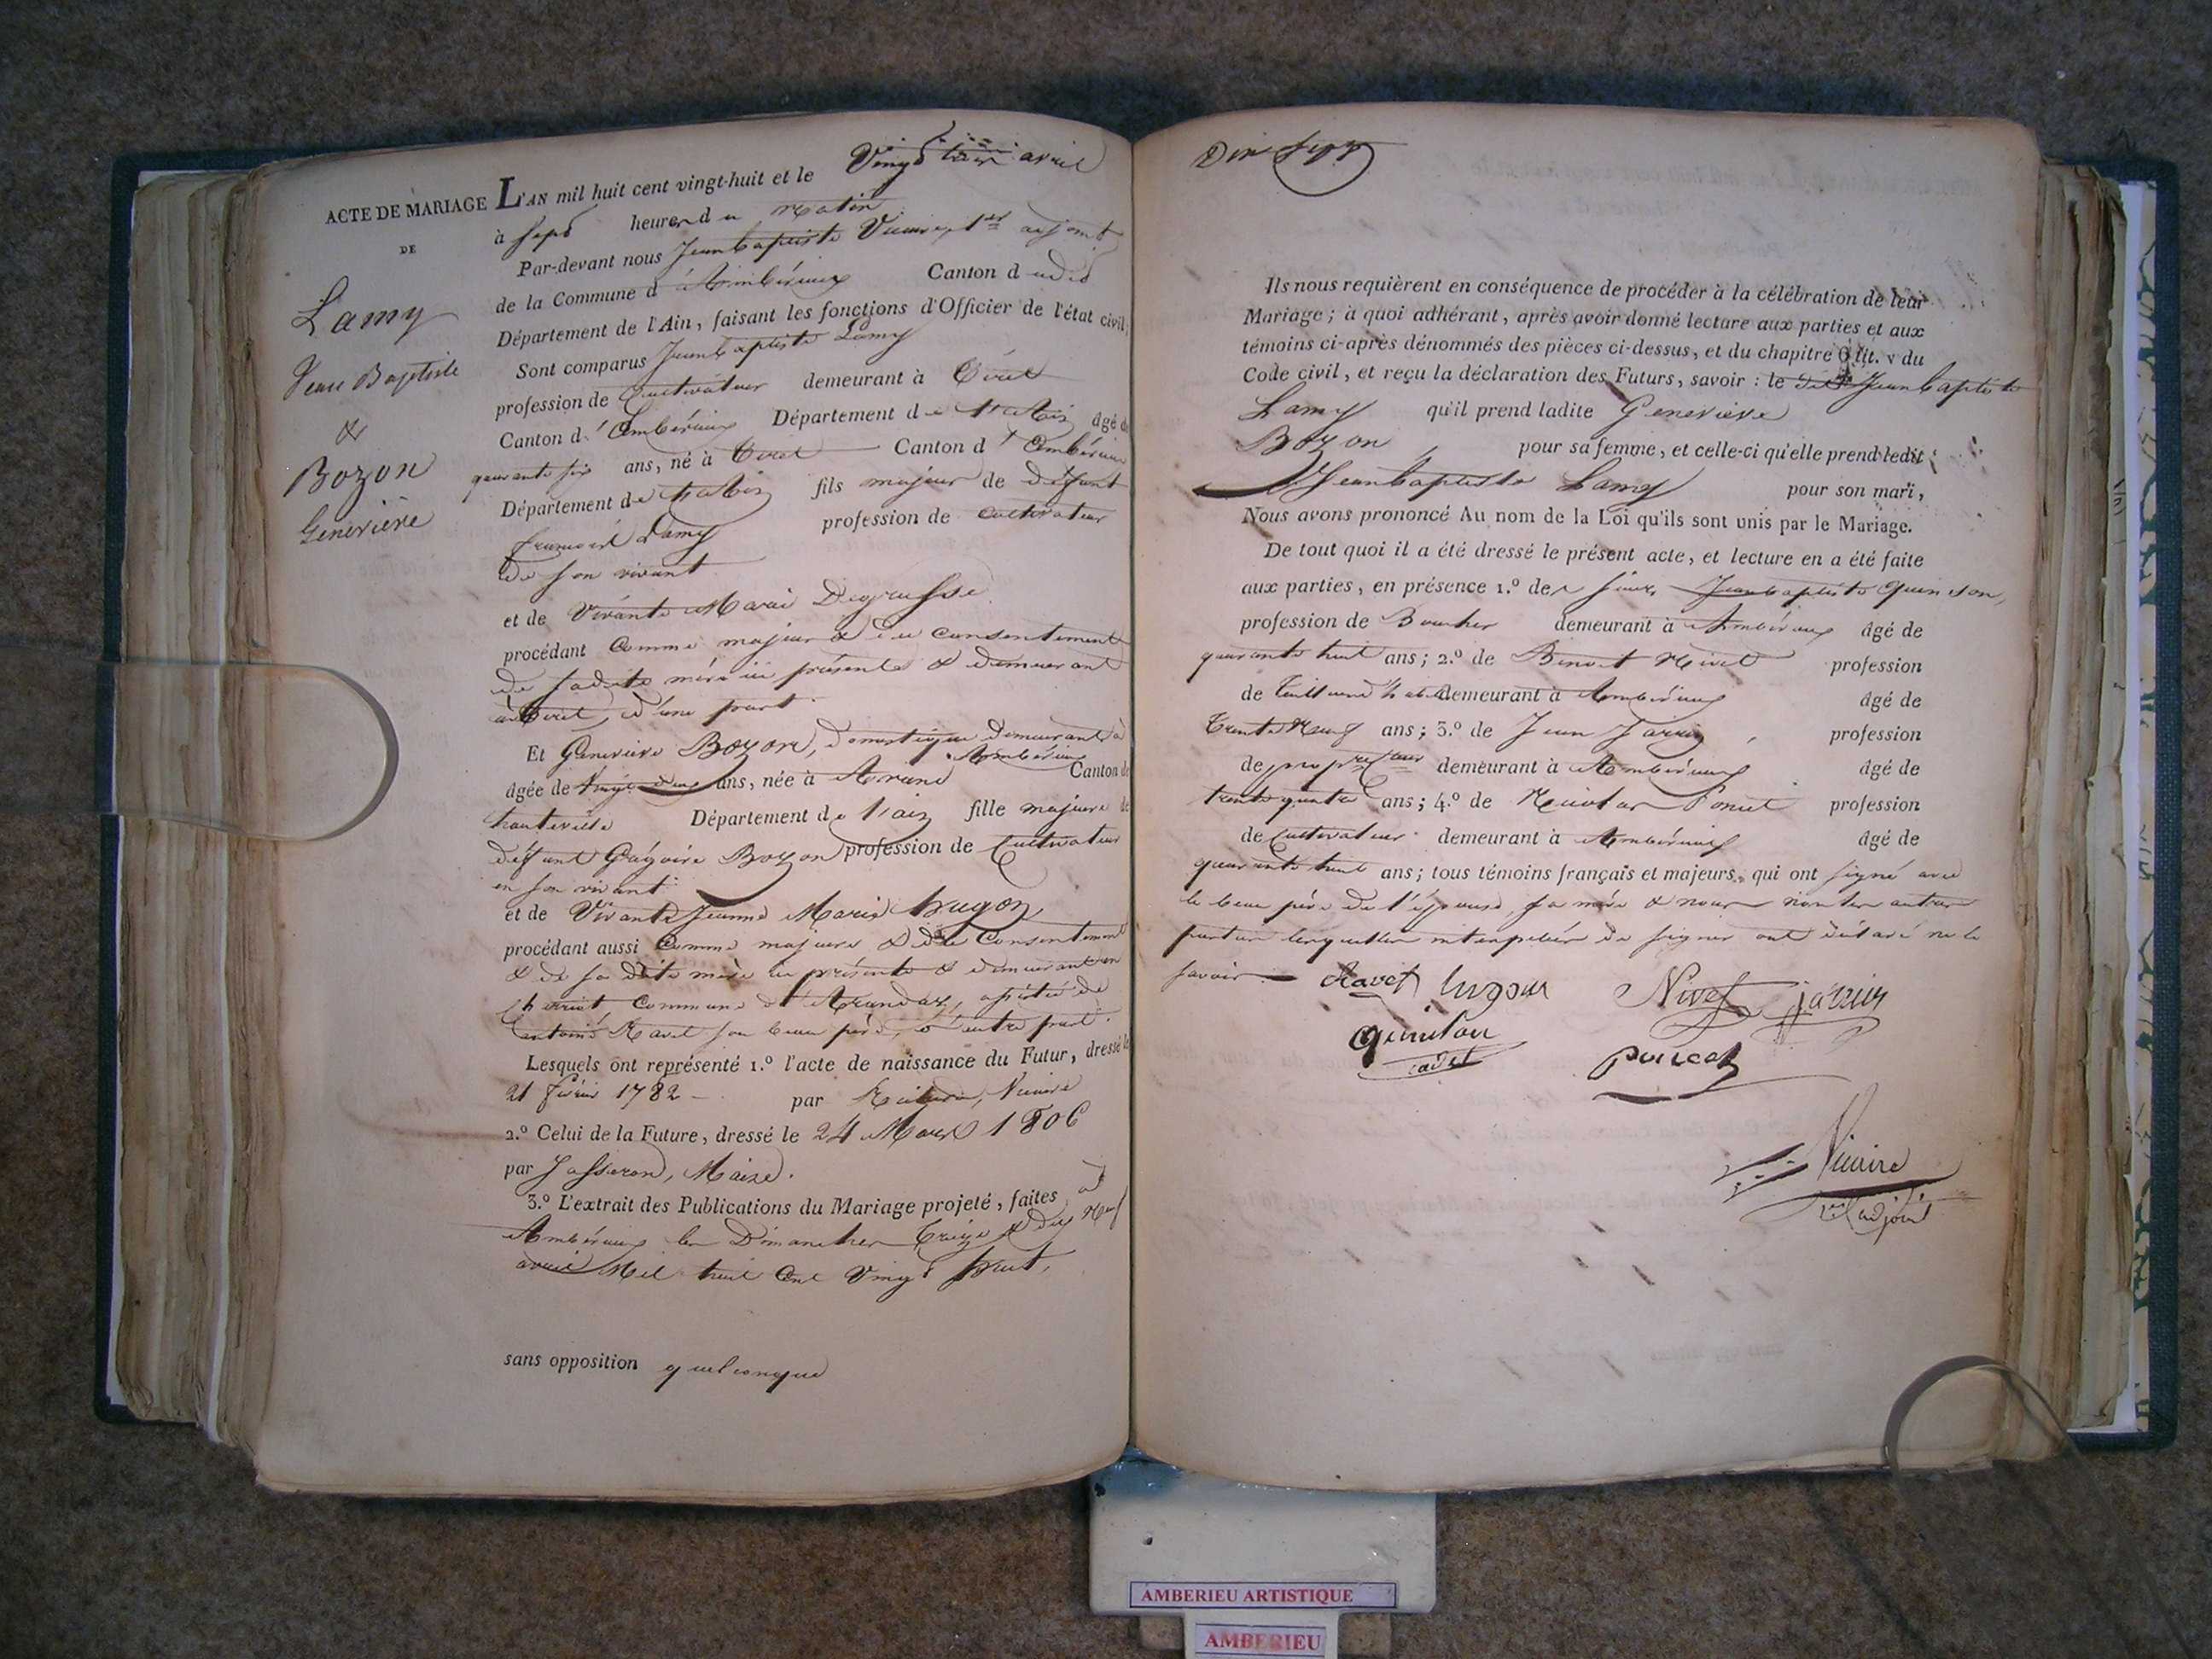 ACTE DE MARIAGE
DE
Lamy
Jean Baptiste
&
Bozon
Geneviève
L'AN mil huit cent vingt-huit et le Vingt avril
à sept heures du matin
Par-devant nous Jean baptiste Vicaire, 1er adjoint
de la Commune d'Ambérieux Canton dudit
Département de l'Ain, faisant les fonctions d'Officier de l'état civil,
Sont comparus Jean baptiste Lamy
profession de Cultivateur demeurant à
Canton d'Ambérieux Département de l'Ain âgé de
quarante six ans, né à Canton d'Ambérieux
Département de l'ain fils majeur de défunt
Lamy profession de cultivateur
de son vivant
et de Vivante Marie
procédant comme majeur & du consentement
de sadite mère ici présente & demeurant
d'une part.
Et Geneviève Bozon, domestique demeurant à Ambérieux
âgée de Vingt deux ans, née à Canton de
hauteville Département de l'ain fille majeure de
défunt Grégoire Bozon profession de Cultivateur
en son vivant
et de Vivante Jeanne Marie hugon
procédant aussi comme majeure & du Consentement
& de sa dite mère ici présente & demeurant en
commune d'Arandaz, assistée de
antoine Ravet son beau père, d'autre part.
Lesquels ont représenté 1.º l'acte de naissance du Futur, dressé le
21 février 1782 par Vicaire
2.º Celui de la Future, dressé le 24 Mars 1806
par Jasseron, Maire.
3.º L'extrait des Publications du Mariage projeté, faites à
Ambérieux les Dimanches treize &
avril Mil huit Cent Vingt huit,
sans opposition quelconque
Dix sept
Ils nous requièrent en conséquence de procéder à la célébration de leur
Mariage; à quoi adhérant, après avoir donné lecture aux parties et aux
témoins ci-après dénommés des pièces ci-dessus, et du chapitre 6 tit. v du
Code civil, et reçu la déclaration des Futurs, savoir : le dit Jean baptiste
Lamy qu'il prend ladite Geneviève
Bozon, pour sa femme, et celle-ci qu'elle prend ledit
Jean baptiste Lamy pour son mari,
Nous avons prononcé Au nom de la Loi qu'ils sont unis par le Mariage.
De tout quoi il a été dressé le présent acte, et lecture en a été faite
aux parties, en présence 1.º des sieurs Jean baptiste Quinson,
profession de Boucher demeurant à Ambérieux âgé de
quarante huit ans; 2.º de Benoit Nivet profession
de demeurant à Ambérieux âgé de
trente Neuf ans; 3.º de Jean Jarrin, profession
de propre taire demeurant à Ambérieux âgé de
trente quatre ans; 4.º de Nicolas Poncet profession
de Cultivateur demeurant à Ambérieux âgé de
quarante huit ans; tous témoins français et majeurs, qui ont signé avec
le beau père de l'épouse, sa mère & nous non les autres
parties lesquelles interpellées de signer ont déclaré ne le
savoir
Ravet hugon Nivet jarrin
quinson cadet poncet
Vicaire
1er adjoint
AMBERIEU ARTISTIQUE
AMBERIEU